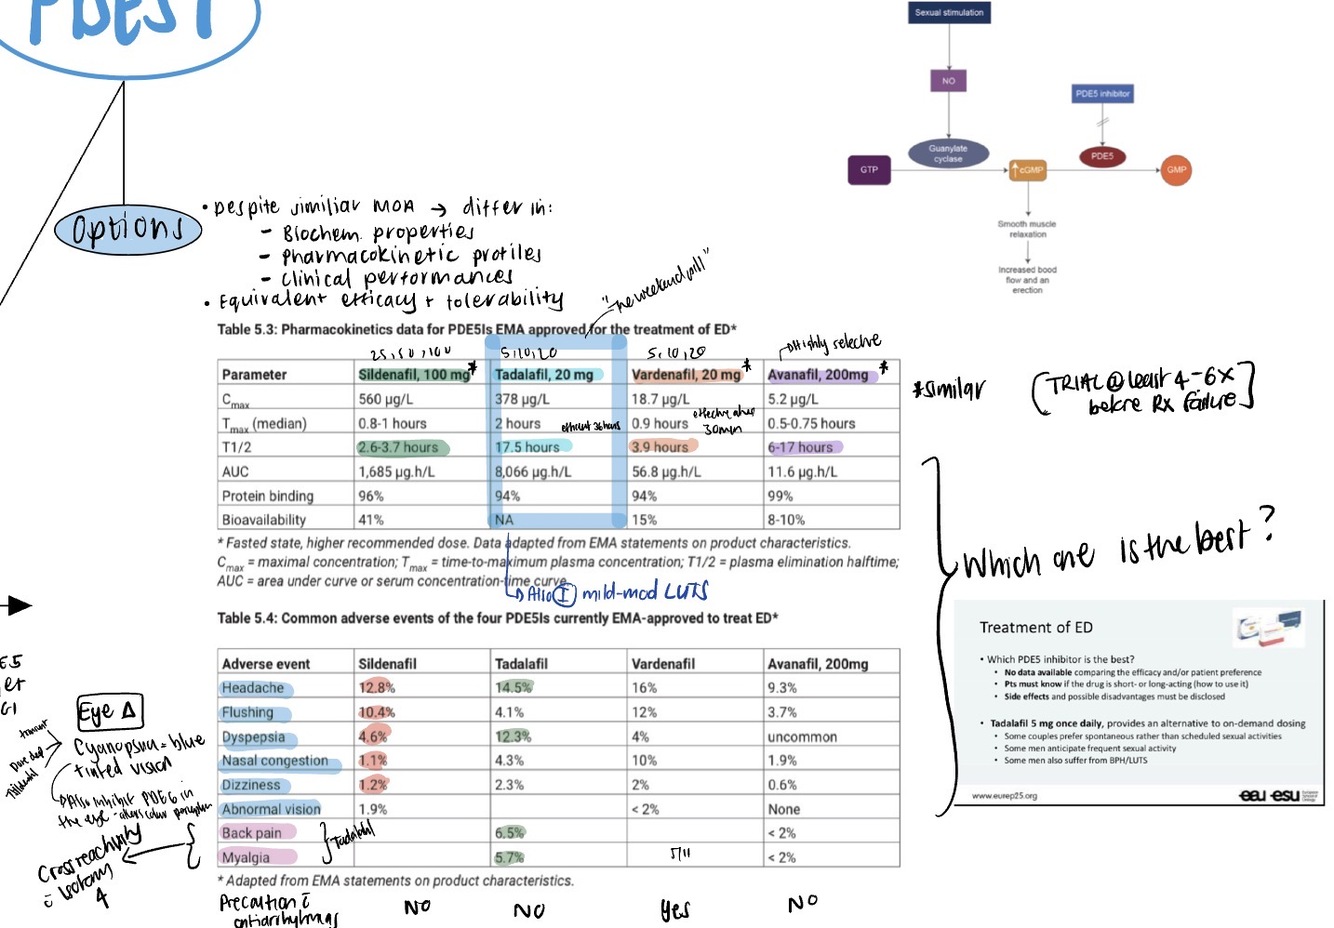 PDE5I
Sexual stimulation
NO
PDE5 inhibitor
Guanylate
cyclase
PDE5
GTP
↑cGMP
GMP
Smooth muscle
relaxation
Increased bood
flow and an
erection
Options
• Despite similiar MOA → differ in:
- Biochem. properties
- Pharmacokinetic profiles
- Clinical performances
• Equivalent efficacy + tolerability
"The weekend pill"
Table 5.3: Pharmacokinetics data for PDE5Is EMA approved for the treatment of ED*
25, 50, 100 5,10,20 5,10,20 Highly selective
Parameter Sildenafil, 100 mg* Tadalafil, 20 mg Vardenafil, 20 mg* Avanafil, 200mg*
Cmax 560 µg/L 378 µg/L 18.7 µg/L 5.2 µg/L
Tmax (median) 0.8-1 hours 2 hours 0.9 hours 0.5-0.75 hours
efficient 36 hours
effective after
30min
T1/2 2.6-3.7 hours 17.5 hours 3.9 hours 6-17 hours
AUC 1,685 µg.h/L 8,066 µg.h/L 56.8 µg.h/L 11.6 µg.h/L
Protein binding 96% 94% 94% 99%
Bioavailability 41% NA 15% 8-10%
* Fasted state, higher recommended dose. Data adapted from EMA statements on product characteristics.
Cmax = maximal concentration; Tmax = time-to-maximum plasma concentration; T1/2 = plasma elimination halftime;
AUC = area under curve or serum concentration-time curve.
Also I mild-mod LUTS
*similar
(TRIAL @ least 4-6x
before Rx failure)
Which one is the best?
Treatment of ED
• Which PDE5 inhibitor is the best?
• No data available comparing the efficacy and/or patient preference
• Pts must know if the drug is short- or long-acting (how to use it)
• Side effects and possible disadvantages must be disclosed
• Tadalafil 5 mg once daily, provides an alternative to on-demand dosing
• Some couples prefer spontaneous rather than scheduled sexual activities
• Some men anticipate frequent sexual activity
• Some men also suffer from BPH/LUTS
www.eurep25.org
eau esu
Table 5.4: Common adverse events of the four PDE5Is currently EMA-approved to treat ED*
Adverse event Sildenafil Tadalafil Vardenafil Avanafil, 200mg
Headache 12.8% 14.5% 16% 9.3%
Flushing 10.4% 4.1% 12% 3.7%
Dyspepsia 4.6% 12.3% 4% uncommon
Nasal congestion 1.1% 4.3% 10% 1.9%
Dizziness 1.2% 2.3% 2% 0.6%
Abnormal vision 1.9% < 2% None
Back pain 6.5% < 2%
Myalgia 5.7% 5/11 < 2%
Tadalafil
* Adapted from EMA statements on product characteristics.
Precaution c̄ NO NO Yes NO
antiarrhythmias
Eye Δ
transient
Dose dep
Cyanopsia = blue
tinted vision
Also inhibit PDE6 in
the eye - alters color perception
Cross reactivity
c̄ isotomy
4
E5
er
GI